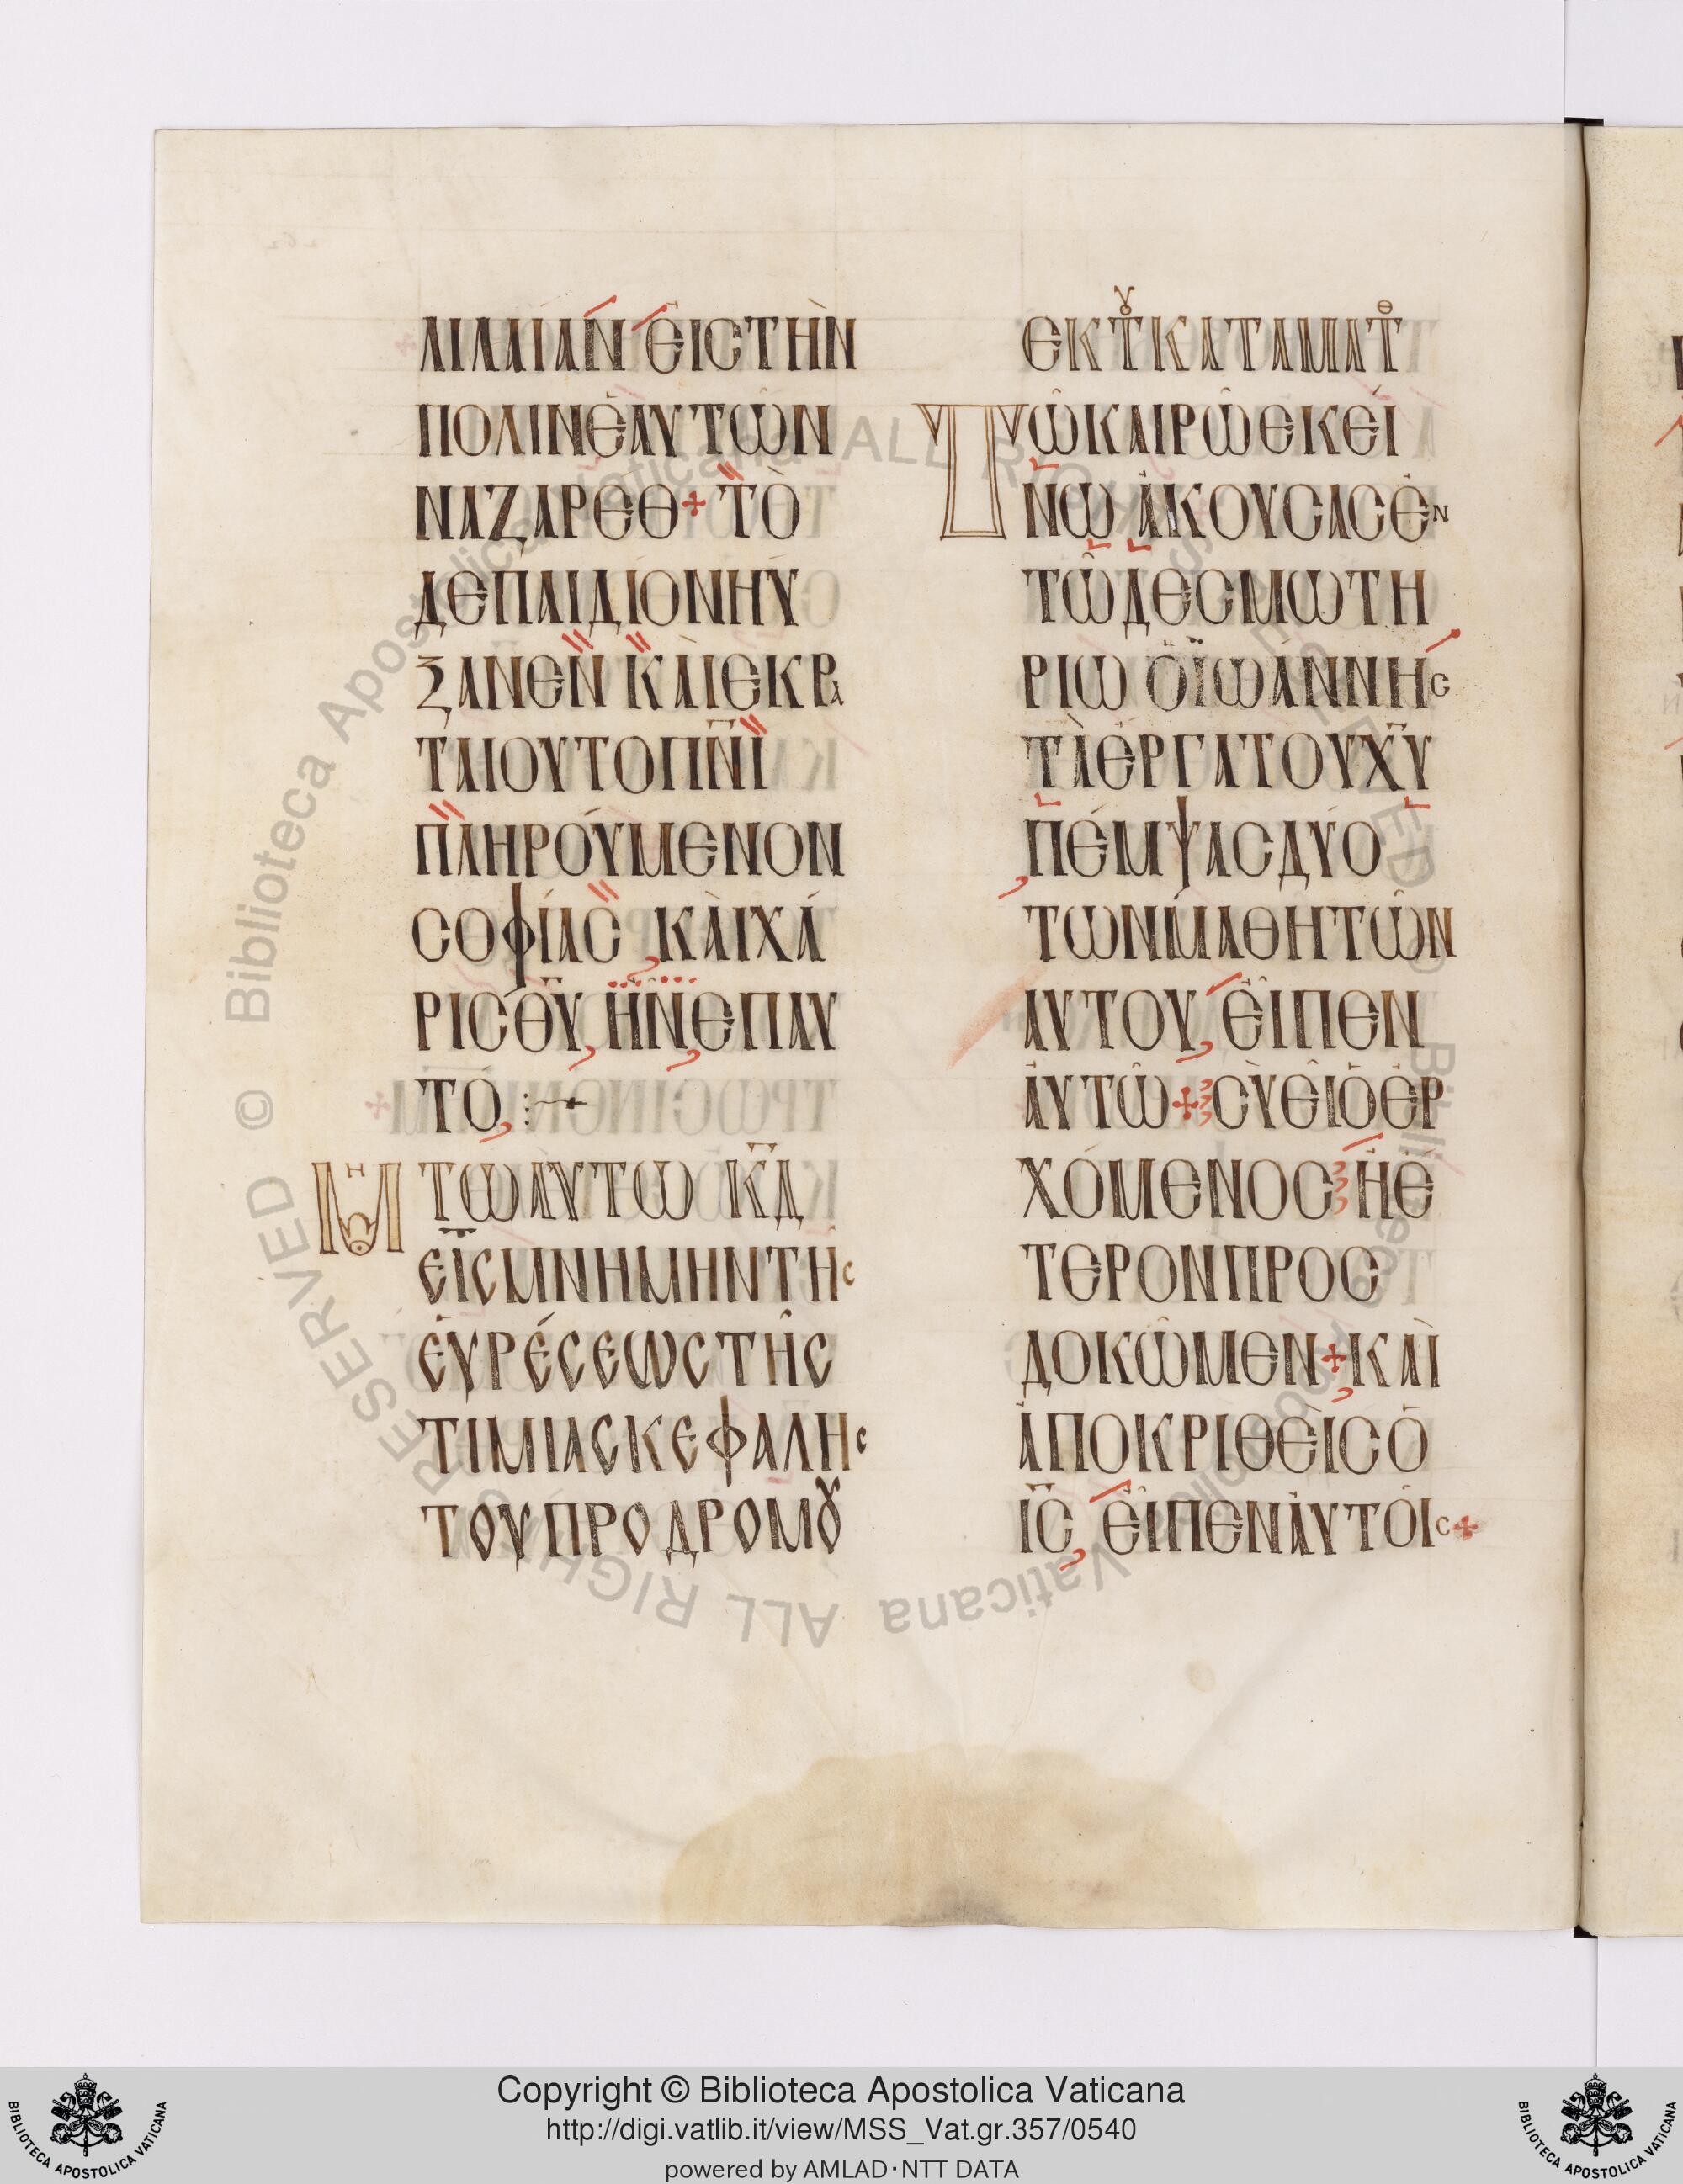 ΛΙΛΑΙΑΝ ΕἸСΤῊΝ
ΠΟΛΙΝἙΑΥΤΩ͂Ν
ΝΑΖΑΡΕΘ + ΤῸ
ΔΕΠΑΙΔΙΟΝΗΥ
ΞΑΝΕΝ ΚΑῚΕΚΡΑ
ΤΑΙΟΥΤΟΠΝ̅Ι̅
ΠΛΗΡΟΎΜΕΝΟΝ
СΟΦΊΑС ΚΑῚΧΆ
ΡΙСΘ̅Υ̅, ἮΝΕΠΑΥ
ΤΌ :—
ΜΗ ΤΩΑΥΤΩ Κ̅Δ̅
ΕἸСΜΝΗΜΗΝΤΗС
ΕΥΡΈСΕΩСΤΗ͂С
ΤΙΜΙΑСΚΕΦΑΛΗС
ΤΟΥΠΡΟΔΡΟΜȢ
ΕΚΤΟΥΚΑΤΑΜΑΤΘ
ΤΩ͂ΚΑΙΡΩ͂ΕΚΕΊ
ΝΩ ἈΚΟΥСΑСἘΝ
ΤΩ͂ΔΕСΜΩΤΗ
ΡΙΩ ὉΪΩΆΝΝΗС
ΤᾺἘΡΓΑΤΟΥΧ̅Υ̅
ΠΈΜΨΑСΔΎΟ
ΤΩΝΜΑΘΗΤΩ͂Ν
ΑΥΤΟΥ, ΕἾΠΕΝ
ἈΥΤΩ͂ + СῪΕἾὉἘΡ
ΧΌΜΕΝΟС ἪἙ
ΤΕΡΟΝΠΡΟС
ΔΟΚΩ͂ΜΕΝ + ΚΑῚ
ἈΠΟΚΡΙΘΕῚСὉ
Ι̅С̅, ΕἾΠΕΝἈΥΤΟΙ͂С +
© Biblioteca Apostolica Vaticana ALL RIGHTS RESERVED
© Biblioteca Apostolica Vaticana ALL RIGHTS RESERVED
Copyright © Biblioteca Apostolica Vaticana
http://digi.vatlib.it/view/MSS_Vat.gr.357/0540
powered by AMLAD·NTT DATA
BIBLIOTECA APOSTOLICA VATICANA
BIBLIOTECA APOSTOLICA VATICANA